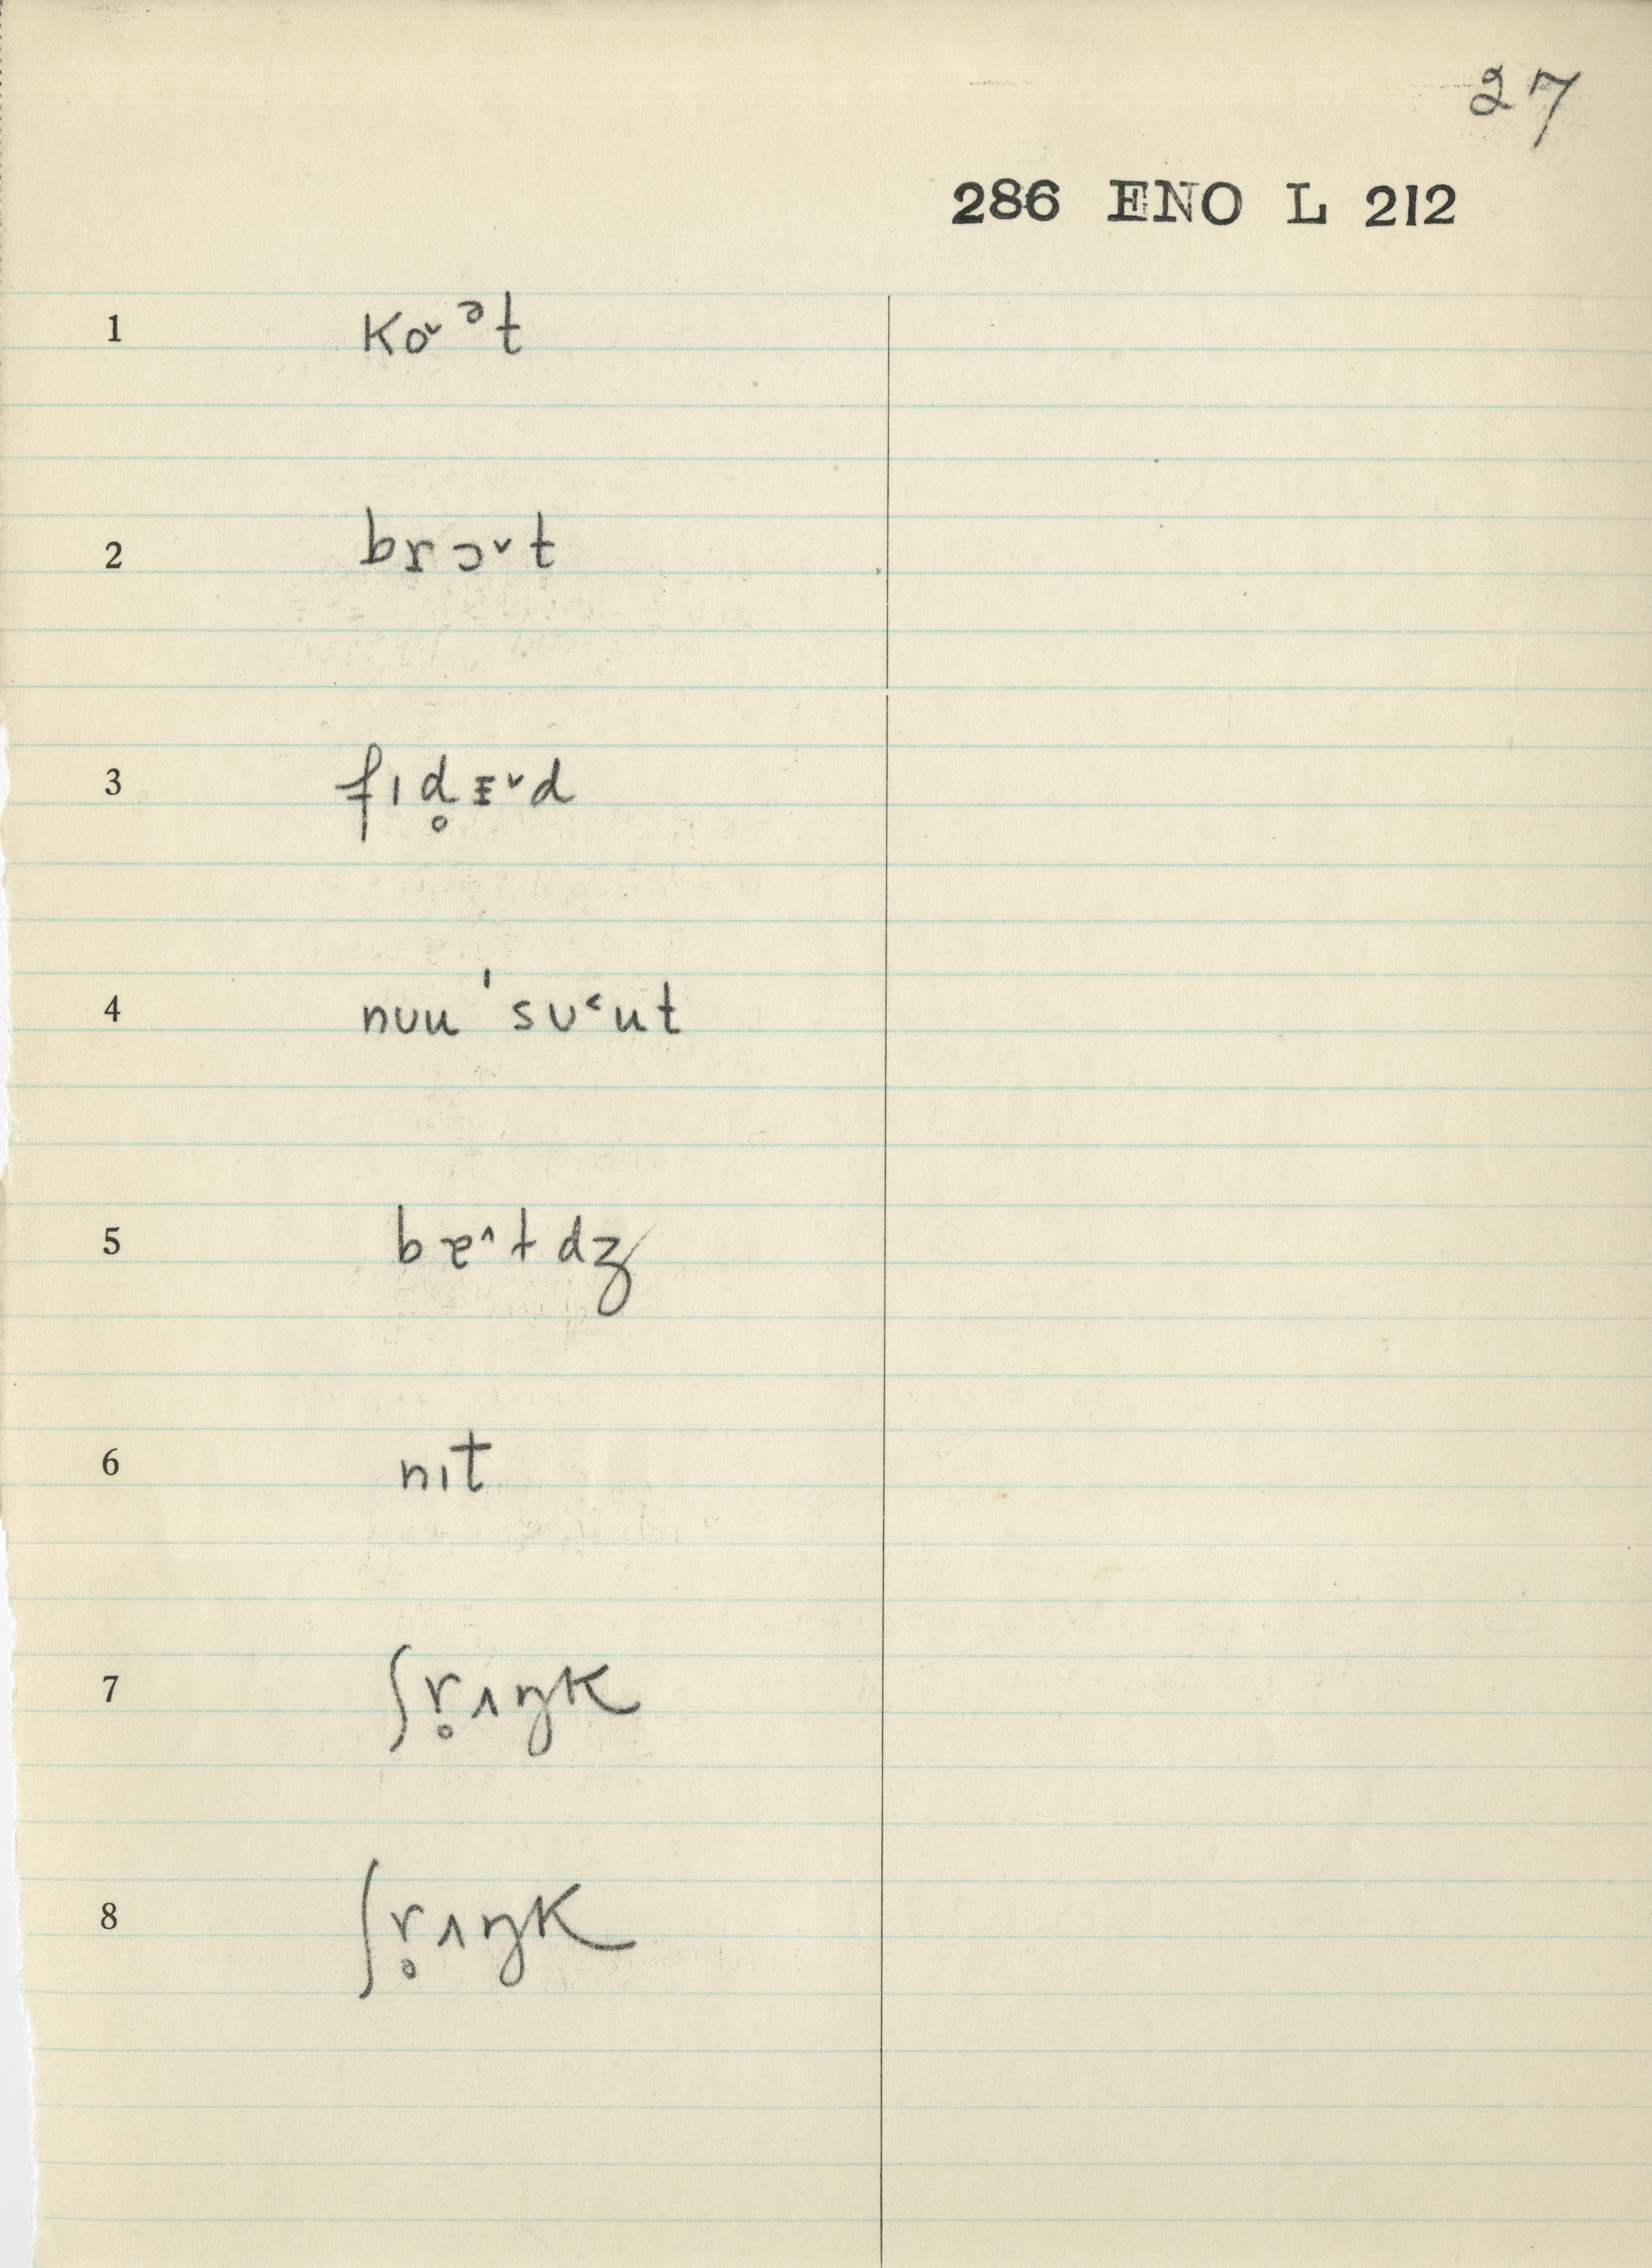 27
286 ENO L 212
1 ko˅ᵊt
2 brɔ˅t
3 fɪd̥ᵻ˅d
4 nuu ˈsu˂ut
5 bɐ˄tdz
6 nɪt
7 ʃr̥ʌŋk
8 ʃr̥ʌŋk